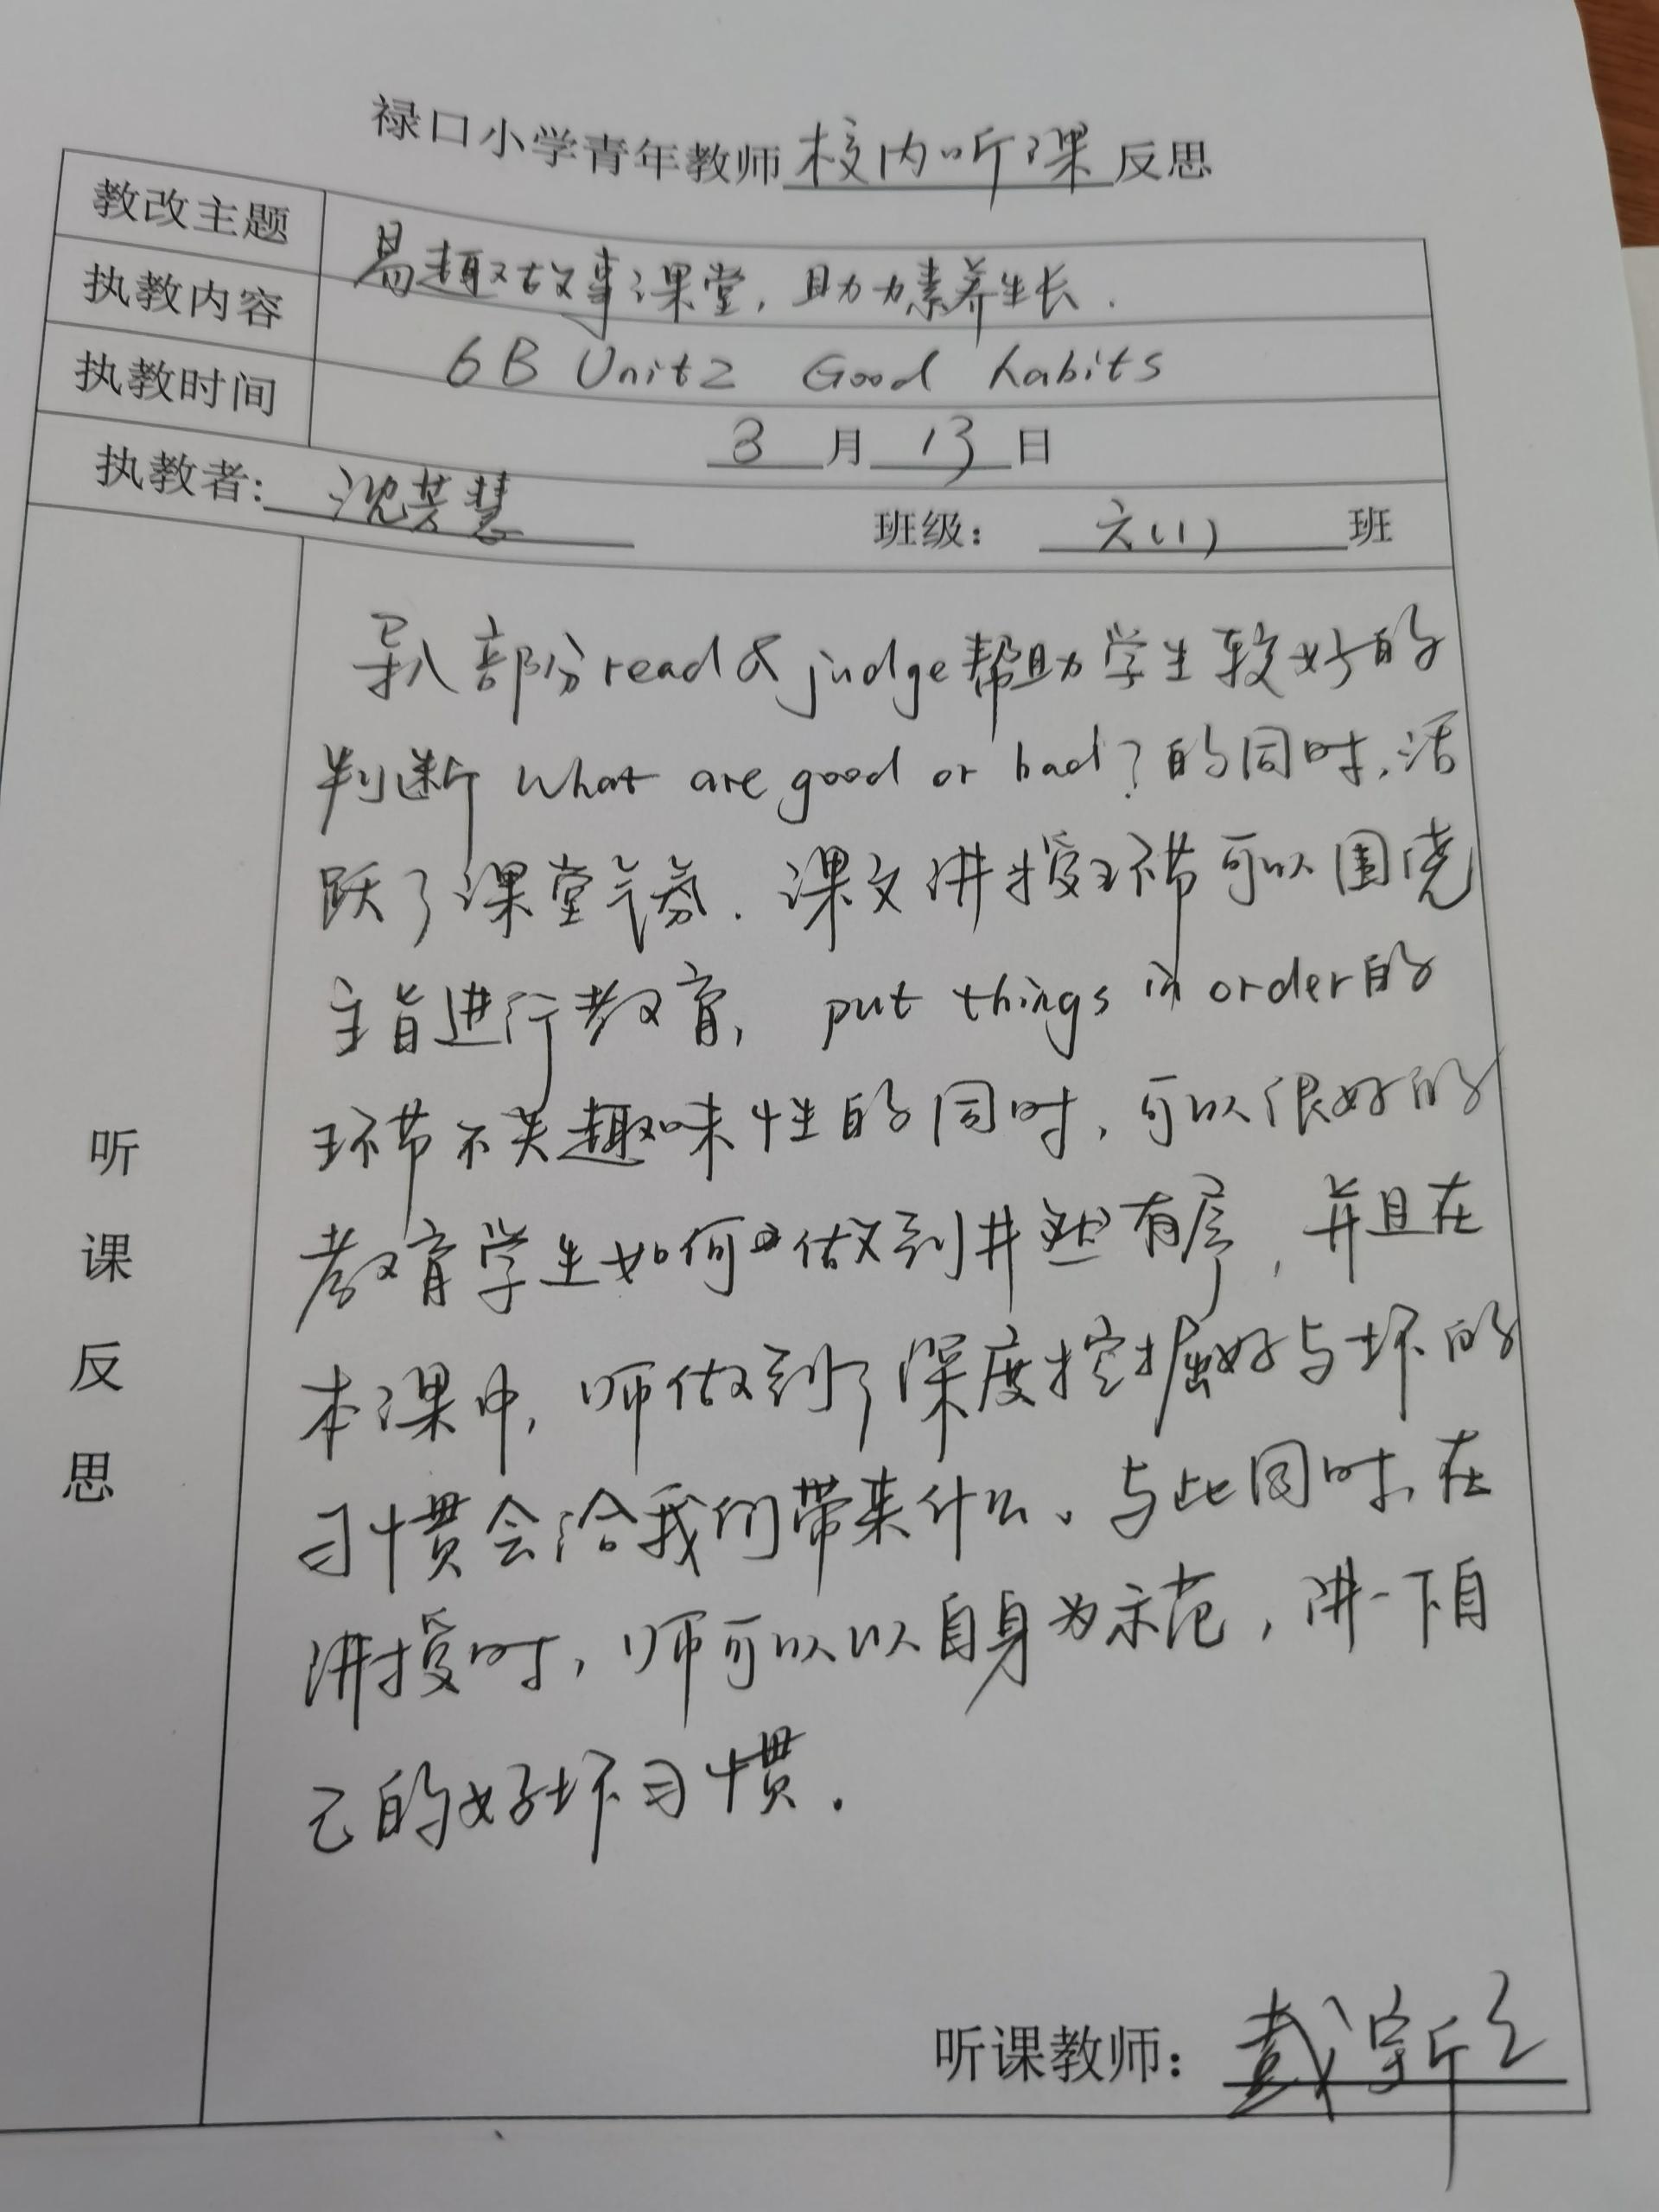 禄口小学青年教师校内听课反思
教改主题 易趣故事课堂，助力素养生长.
执教内容 6B Unit2 Good habits
执教时间 3月13日
执教者: 沈芸慧 班级: 六(1)班
听课反思
导入部分read & judge帮助学生较好的
判断 what are good or bad? 的同时，活
跃了课堂气氛. 课文讲授环节可以围绕
主旨进行教育, put things in order的
环节不失趣味性的同时, 可以很好的
教育学生如何做到井然有序, 并且在
本课中, 师做到了深度挖掘好与坏的
习惯会给我们带来什么。与此同时, 在
讲授时, 师可以以自身为示范, 讲一下自
己的好坏习惯.
听课教师: 戴